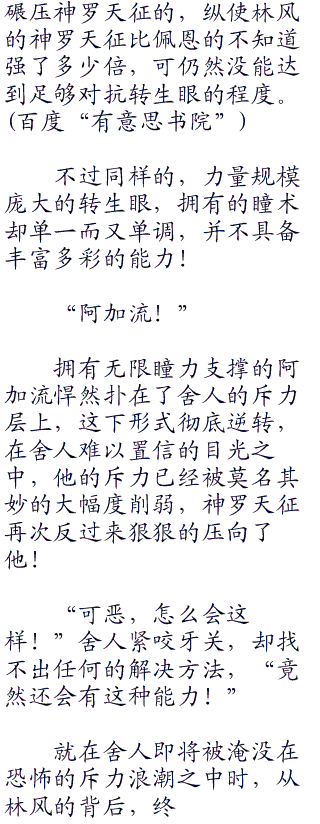 碾压神罗天征的，纵使林风
的神罗天征比佩恩的不知道
强了多少倍，可仍然没能达
到足够对抗转生眼的程度。
(百度“有意思书院”)
不过同样的，力量规模
庞大的转生眼，拥有的瞳术
却单一而又单调，并不具备
丰富多彩的能力！
“阿加流！”
拥有无限瞳力支撑的阿
加流悍然扑在了舍人的斥力
层上，这下形式彻底逆转，
在舍人难以置信的目光之
中，他的斥力已经被莫名其
妙的大幅度削弱，神罗天征
再次反过来狠狠的压向了
他！
“可恶，怎么会这
样！”舍人紧咬牙关，却找
不出任何的解决方法，“竟
然还会有这种能力！”
就在舍人即将被淹没在
恐怖的斥力浪潮之中时，从
林风的背后，终